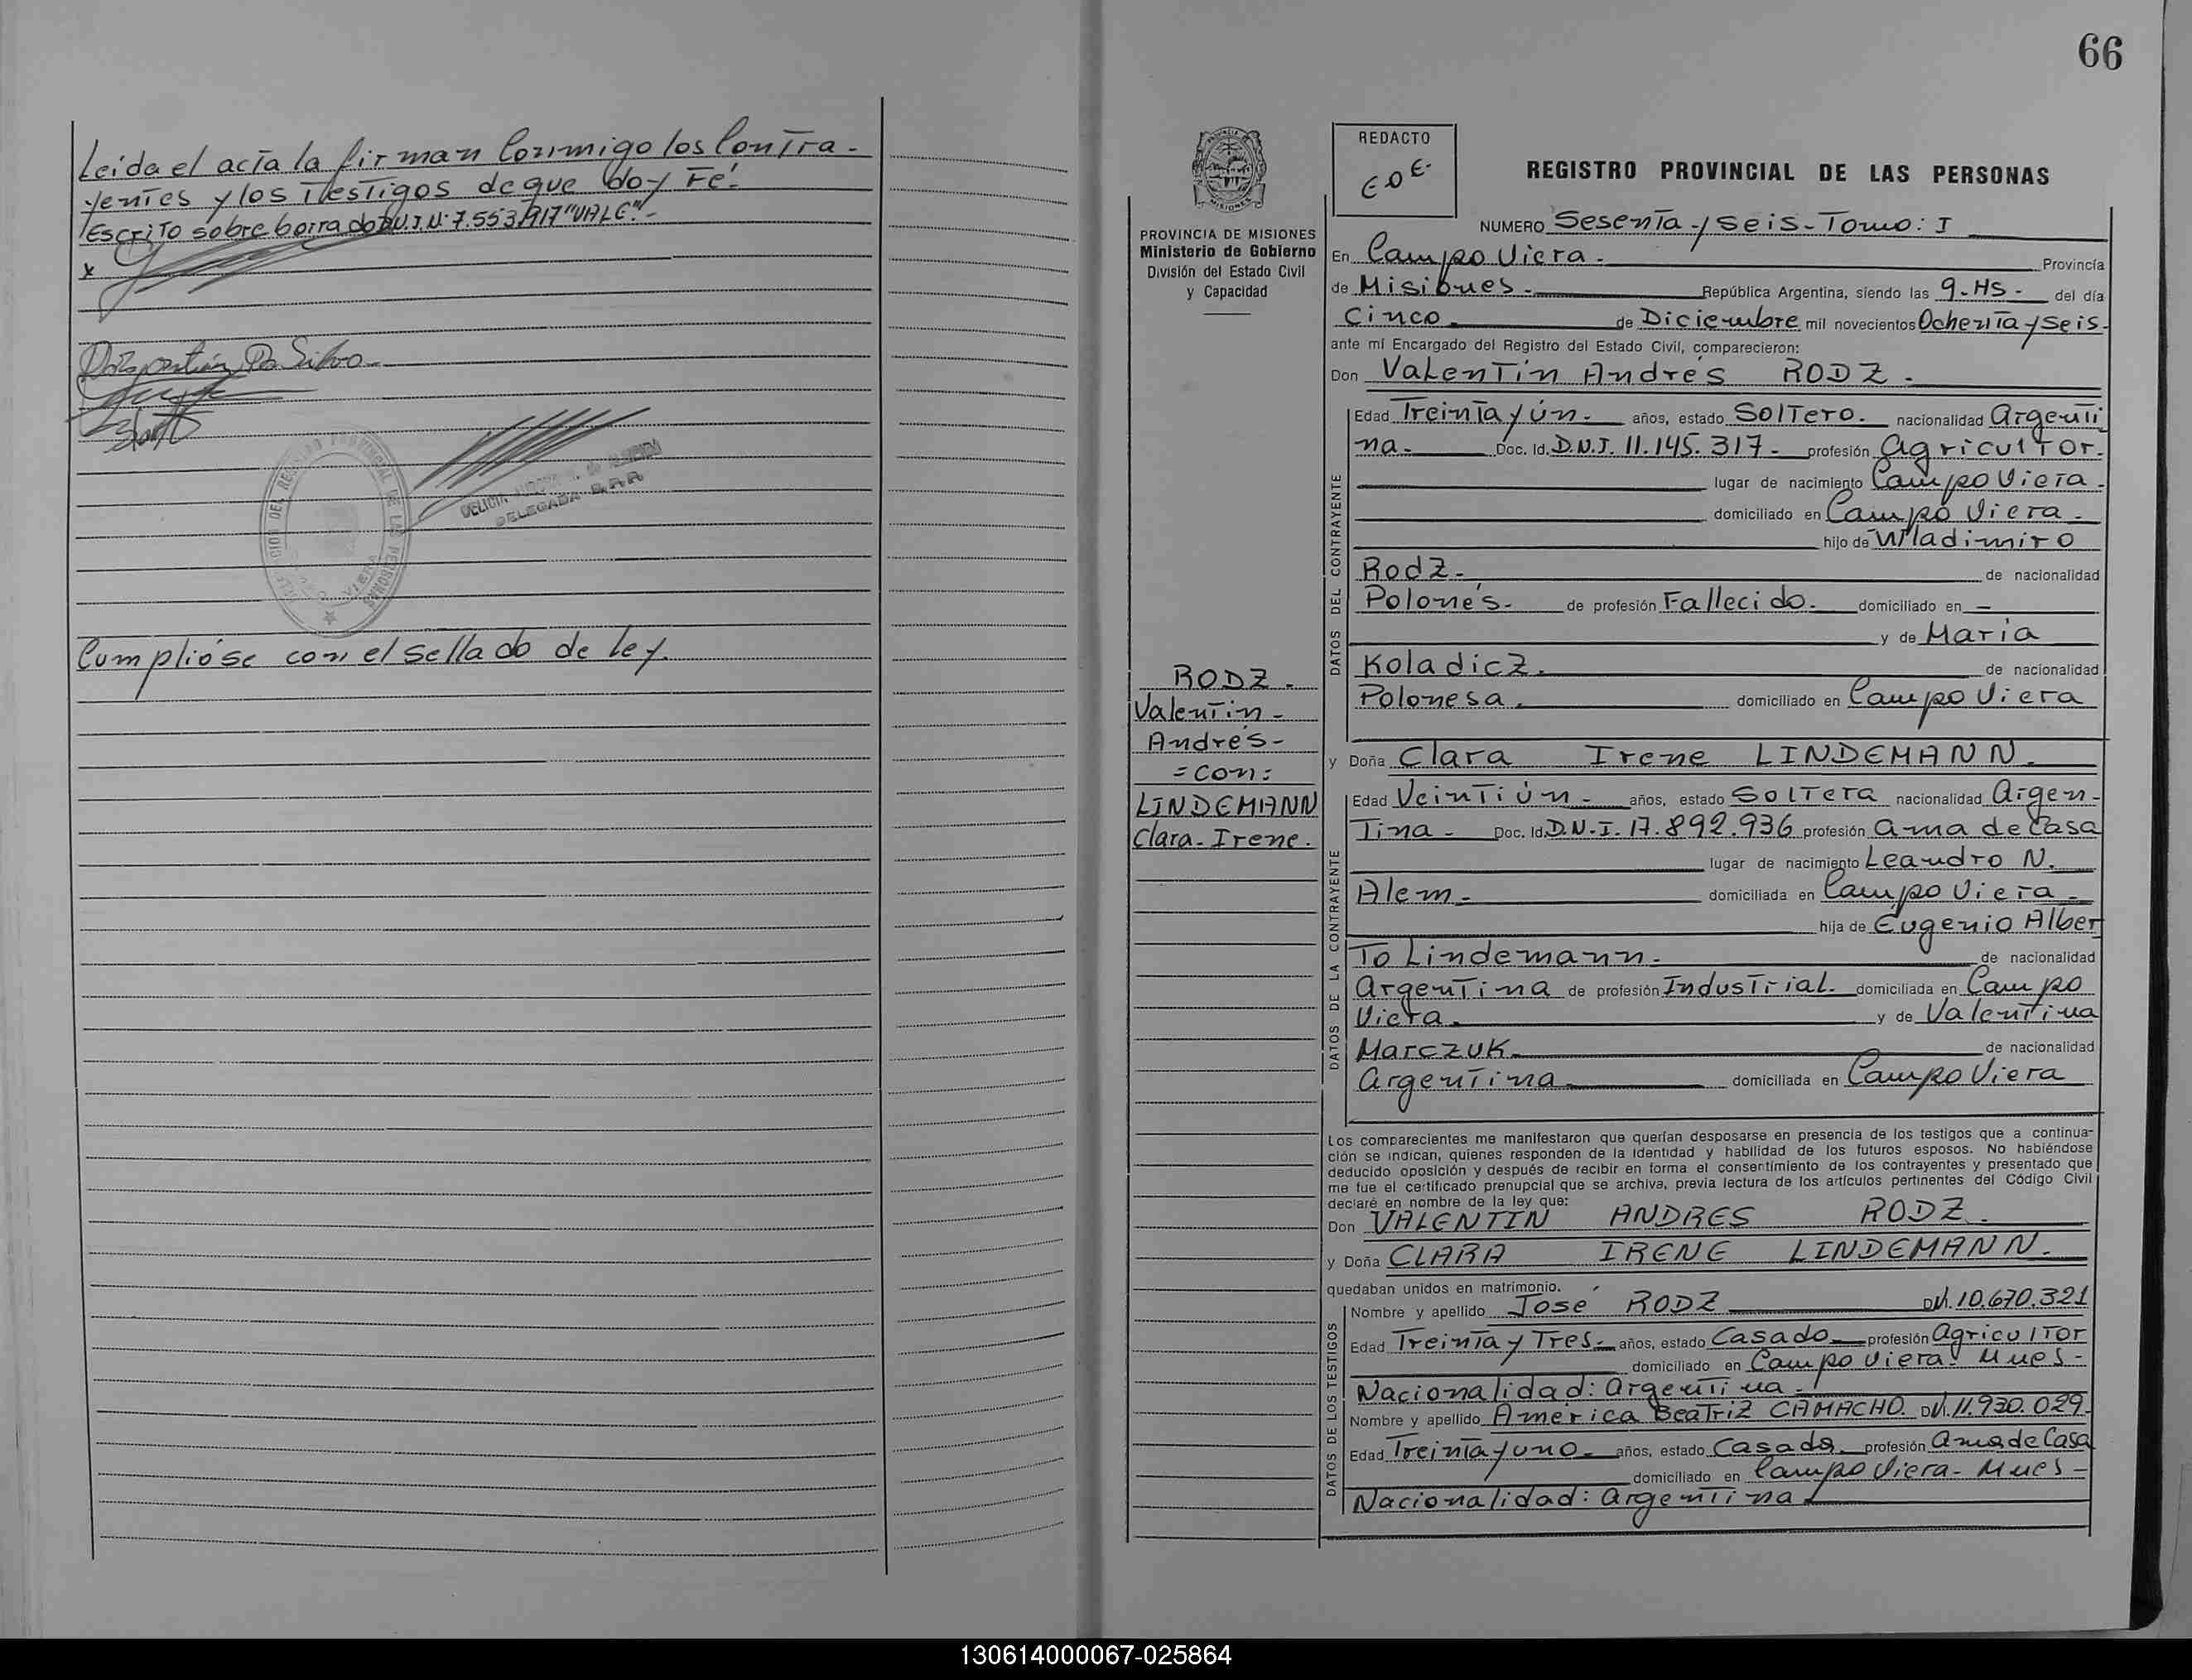 Leida el acta la firman Conmigo los Contra-
yentes y los Testigos de que doy Fé.-
Escrito sobre borrado D.N.I.Nº 7.553.917 "VALE".-
x
Cumplióse con el sellado de Ley.
66
REDACTO
EOE.
REGISTRO PROVINCIAL DE LAS PERSONAS
NUMERO Sesenta y Seis-Tomo: I
PROVINCIA DE MISIONES
Ministerio de Gobierno
División del Estado Civil
y Capacidad
En Campo Viera.- Provincia
de Misiones.- República Argentina, siendo las 9.Hs- del día
Cinco. de Diciembre mil novecientos Ochenta y Seis-
ante mí Encargado del Registro del Estado Civil, comparecieron:
Don Valentin Andrés RODZ.-
DATOS DEL CONTRAYENTE
Edad Treinta y ún.- años, estado Soltero. nacionalidad Argenti
na.- Doc. Id. D.N.I. 11.145.317- profesión Agricultor.
lugar de nacimiento Campo Viera-
domiciliado en Campo Viera-
hijo de Wladimiro
Rodz- de nacionalidad
Polonés.- de profesión Fallecido.- domiciliado en -
y de Maria
Koladicz. de nacionalidad
Polonesa. domiciliado en Campo Viera
RODZ.-
Valentin-
Andrés-
=con:
LINDEMANN
Clara-Irene.
y Doña Clara Irene LINDEMANN.
DATOS DE LA CONTRAYENTE
Edad Veintiún- años, estado Soltera nacionalidad Argen-
Tina- Doc. Id. D.N.I. 17.892.936 profesión ama de Casa
lugar de nacimiento Leandro N.
Alem.- domiciliada en Campo Viera-
hija de Eugenio Alber
To Lindemann.- de nacionalidad
Argentina de profesión Industrial. domiciliada en Campo
Viera. y de Valentina
Marczuk. de nacionalidad
Argentina domiciliada en Campo Viera
Los comparecientes me manifestaron que querían desposarse en presencia de los testigos que a continua-
ción se indican, quienes responden de la identidad y habilidad de los futuros esposos. No habiéndose
deducido oposición y después de recibir en forma el consentimiento de los contrayentes y presentado que
me fue el certificado prenupcial que se archiva, previa lectura de los artículos pertinentes del Código Civil
declaré en nombre de la ley que:
Don VALENTIN ANDRES RODZ.-
y Doña CLARA IRENE LINDEMANN.
quedaban unidos en matrimonio.
DATOS DE LOS TESTIGOS
Nombre y apellido José RODZ DNI.10.670.321
Edad Treinta y Tres.- años, estado Casado profesión Agricultor
domiciliado en Campo Viera. Mnes-
Nacionalidad: Argentina.-
Nombre y apellido América Beatriz CAMACHO. DNI.11.930.029.
Edad Treinta y uno.- años, estado Casada profesión Ama de Casa
domiciliado en Campo Viera- Mnes-
Nacionalidad: Argentina
130614000067-025864